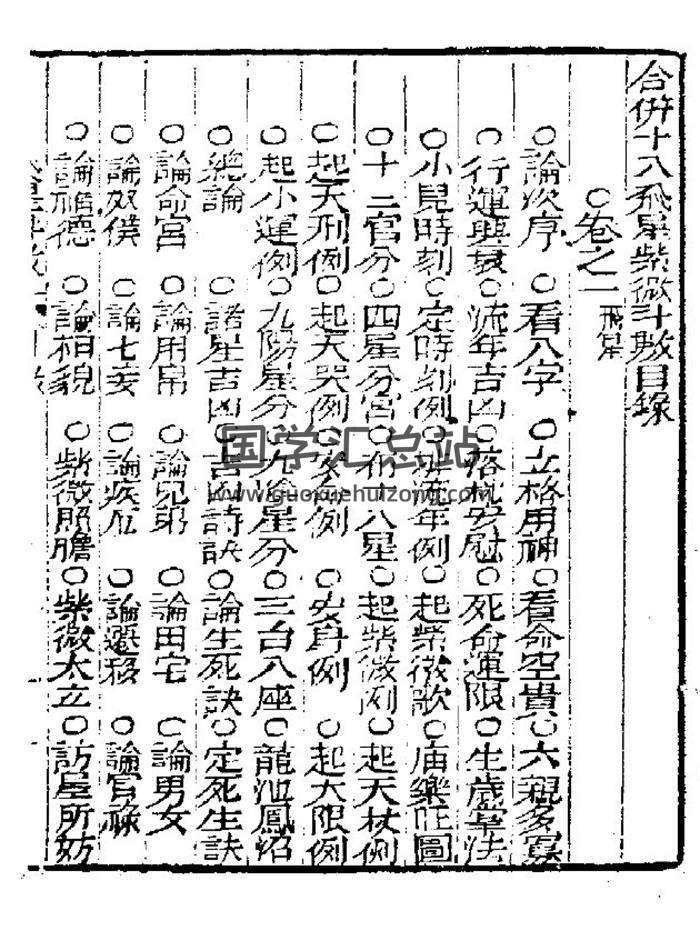 合併十八飛星紫微斗數目錄
○卷之一 飛星
○論次序○看八字○立格用神○看命空貴○六親多寡
○行運興衰○流年吉凶○死命運限○生歲掌法
○小兒時刻○定時刻例○流年例○起紫微歌○庙樂旺圖
○十二宫分○四星分宮○十八星○起紫微例○起天杖例
○起天刑例○起天哭例○例○安身例○起大限例
○起小運例○九陽星分○九星分○三台八座○龍池鳳沼
○總論○諸星吉凶○吉凶詩訣○論生死訣○定死生訣
○論命宮○論用帛○論兄弟○論田宅○論男女
○論奴僕○論七妾○論疾厄○論遷移○論官祿
○論福德○論相貌○紫微照膽○紫微太立○訪星所妨
国学汇总站
www.guoxuehuizong.com